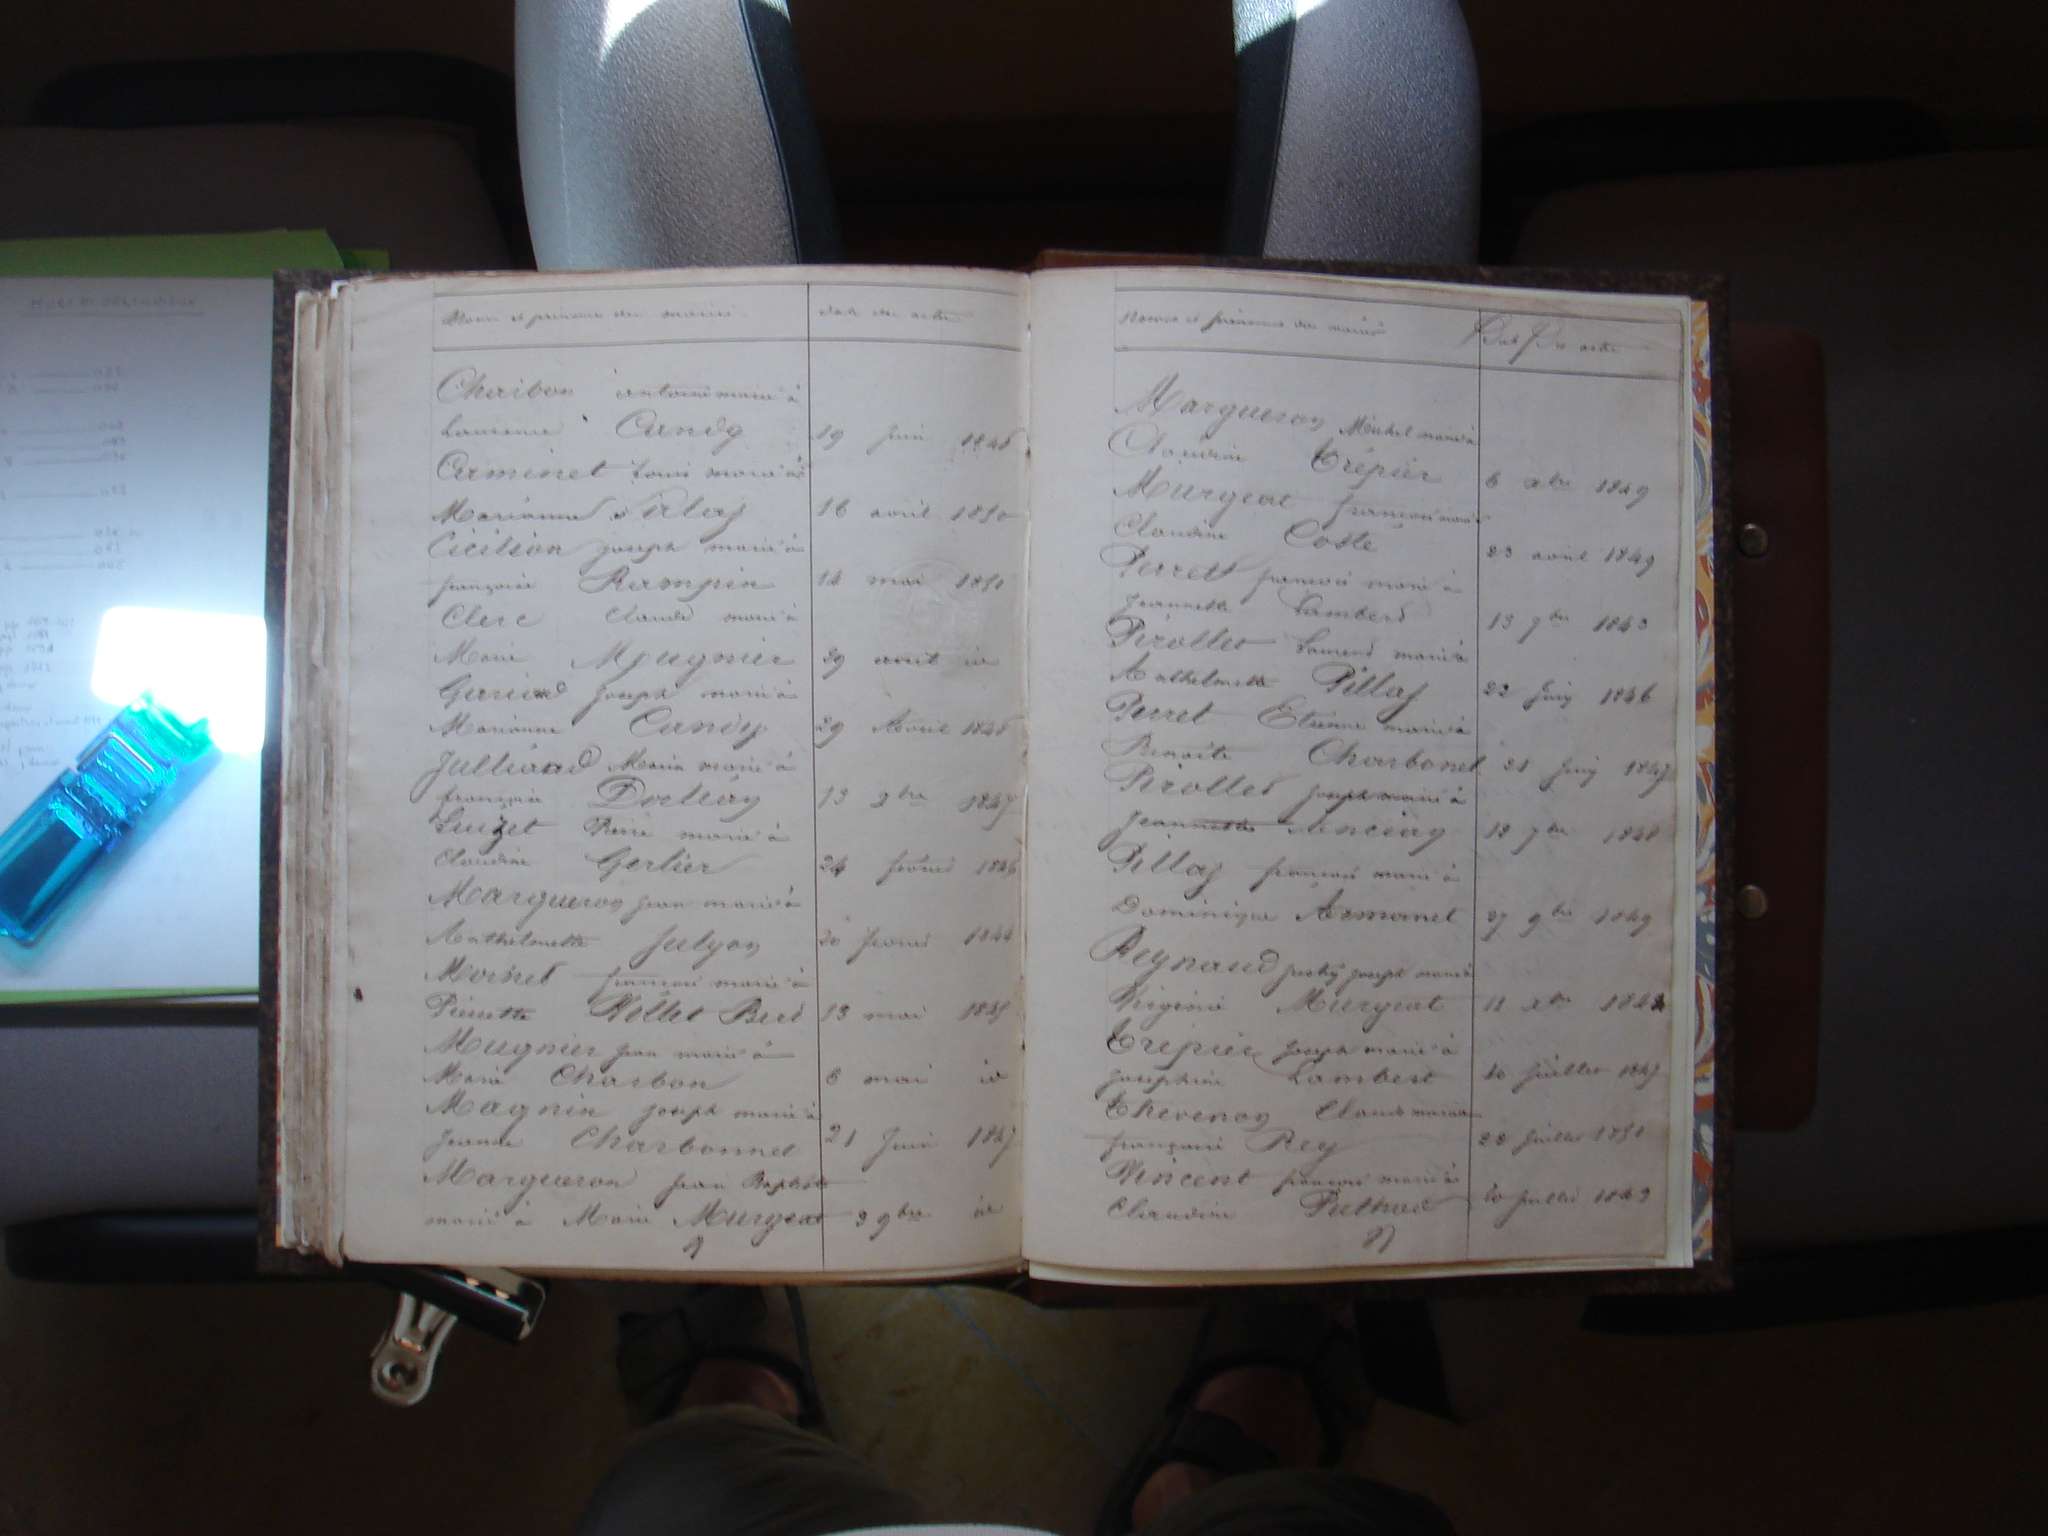 Noms et prénoms des mariés date des actes
Charbon antoine marié à
Laurence Candy 19 juin 1846
Carminet Louis marié à
Marianne Pilaz 16 avril 1850
Cicilion joseph marié à
françoise Rampin 14 mai 1851
Clerc Claude marié à
Marie Mougnier 29 avril id
joseph marié à
Marianne Candy 29 Avril 1846
Julliand Marin marié à
françoise 13 1847
Luizet Pierre marié à
Claudine Gerlier 24 février 1846
Margueron jean marié à
Anthelmette Julyon 20 février 1844
Mornet françois marié à
Pierrette 13 mai 1845
Mugnier jean marié à
Marie Charbon 6 mai id
Magnin joseph marié à
jeanne Charbonnet 21 juin 1847
Margueron jean Baptiste
marié à Marie Murgeat 3 9bre id
Noms et prénoms des mariés Date des actes
Margueron Michel marié à
Claudine Trépier 6 xbre 1849
Murgeat françois marié
Claudine Coste 23 avril 1849
Perret françois marié à
jeannette Lambert 13 7bre 1843
Pirollet Laurend marié à
Anthelmette Pillaz 22 juin 1846
Perret Etienne marié à
Benoite Charbonet 21 juin 1847
Pirollet joseph marié à
jeannette 18 7bre 1848
Pillaz françois marié à
Dominique Armanet 27 9bre 1849
Reynaud joseph marié à
Virginie Murgeat 11 xbre
Trépier joseph marié à
josephine Lambert 10 juillet 1847
Thevenon Claude marié à
françoise Rey 22 juillet 1851
Vincent françois marié à
Claudine 20 juillet 1843